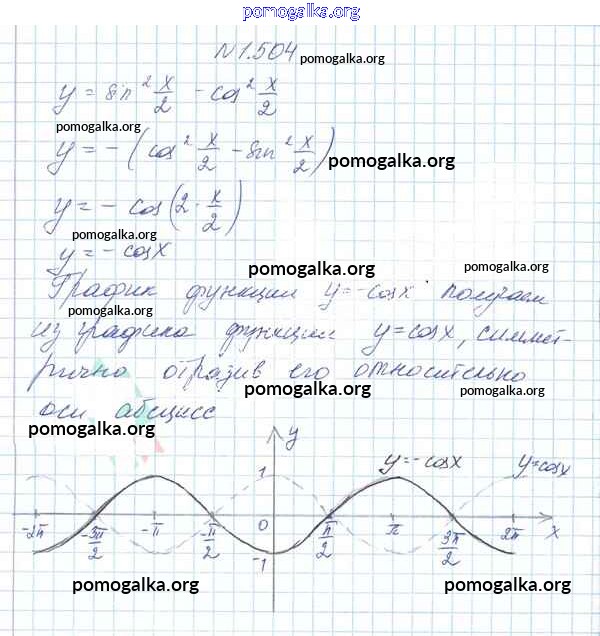 pomogalka.org
N1.504 pomogalka.org
y = sin² x/2 - cos² x/2
pomogalka.org
y = - (cos² x/2 - sin² x/2) pomogalka.org
y = - cos (2 · x/2)
pomogalka.org
y = - cosx
pomogalka.org pomogalka.org
График функции y=-cosx получаем
из графика функции y=cosx, симмет-
рично отразив его относительно
pomogalka.org pomogalka.org
оси абсцисс
pomogalka.org
y
1 y=-cosx y=cosx
-2π -3π/2 -π -π/2 0 π/2 π 3π/2 2π x
-1
pomogalka.org pomogalka.org